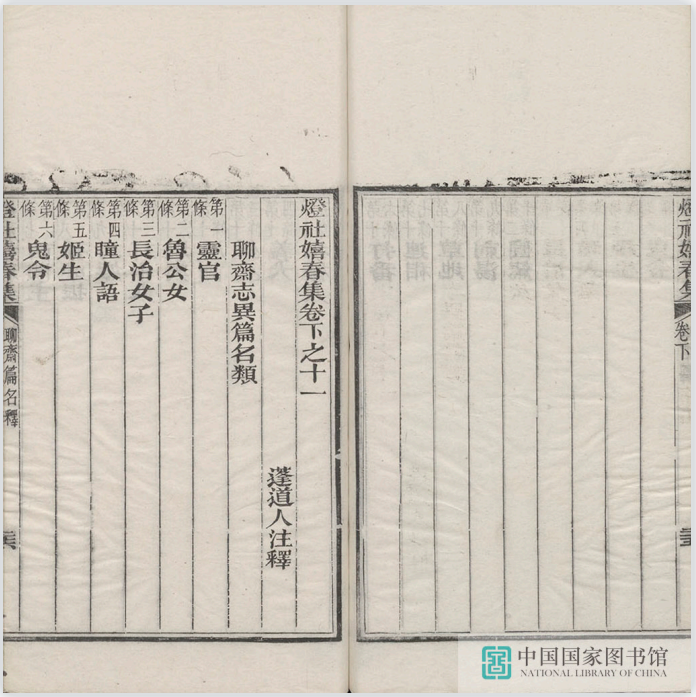 燈社嬉春集
卷下
燈社嬉春集卷下之十一
蓬道人注釋
聊齋志異篇名類
第一條 靈官
第二條 魯公女
第三條 長治女子
第四條 瞳人語
第五條 姬生
第六條 鬼令
燈社嬉春集
聊齋篇名釋
中国国家图书馆
NATIONAL LIBRARY OF CHINA